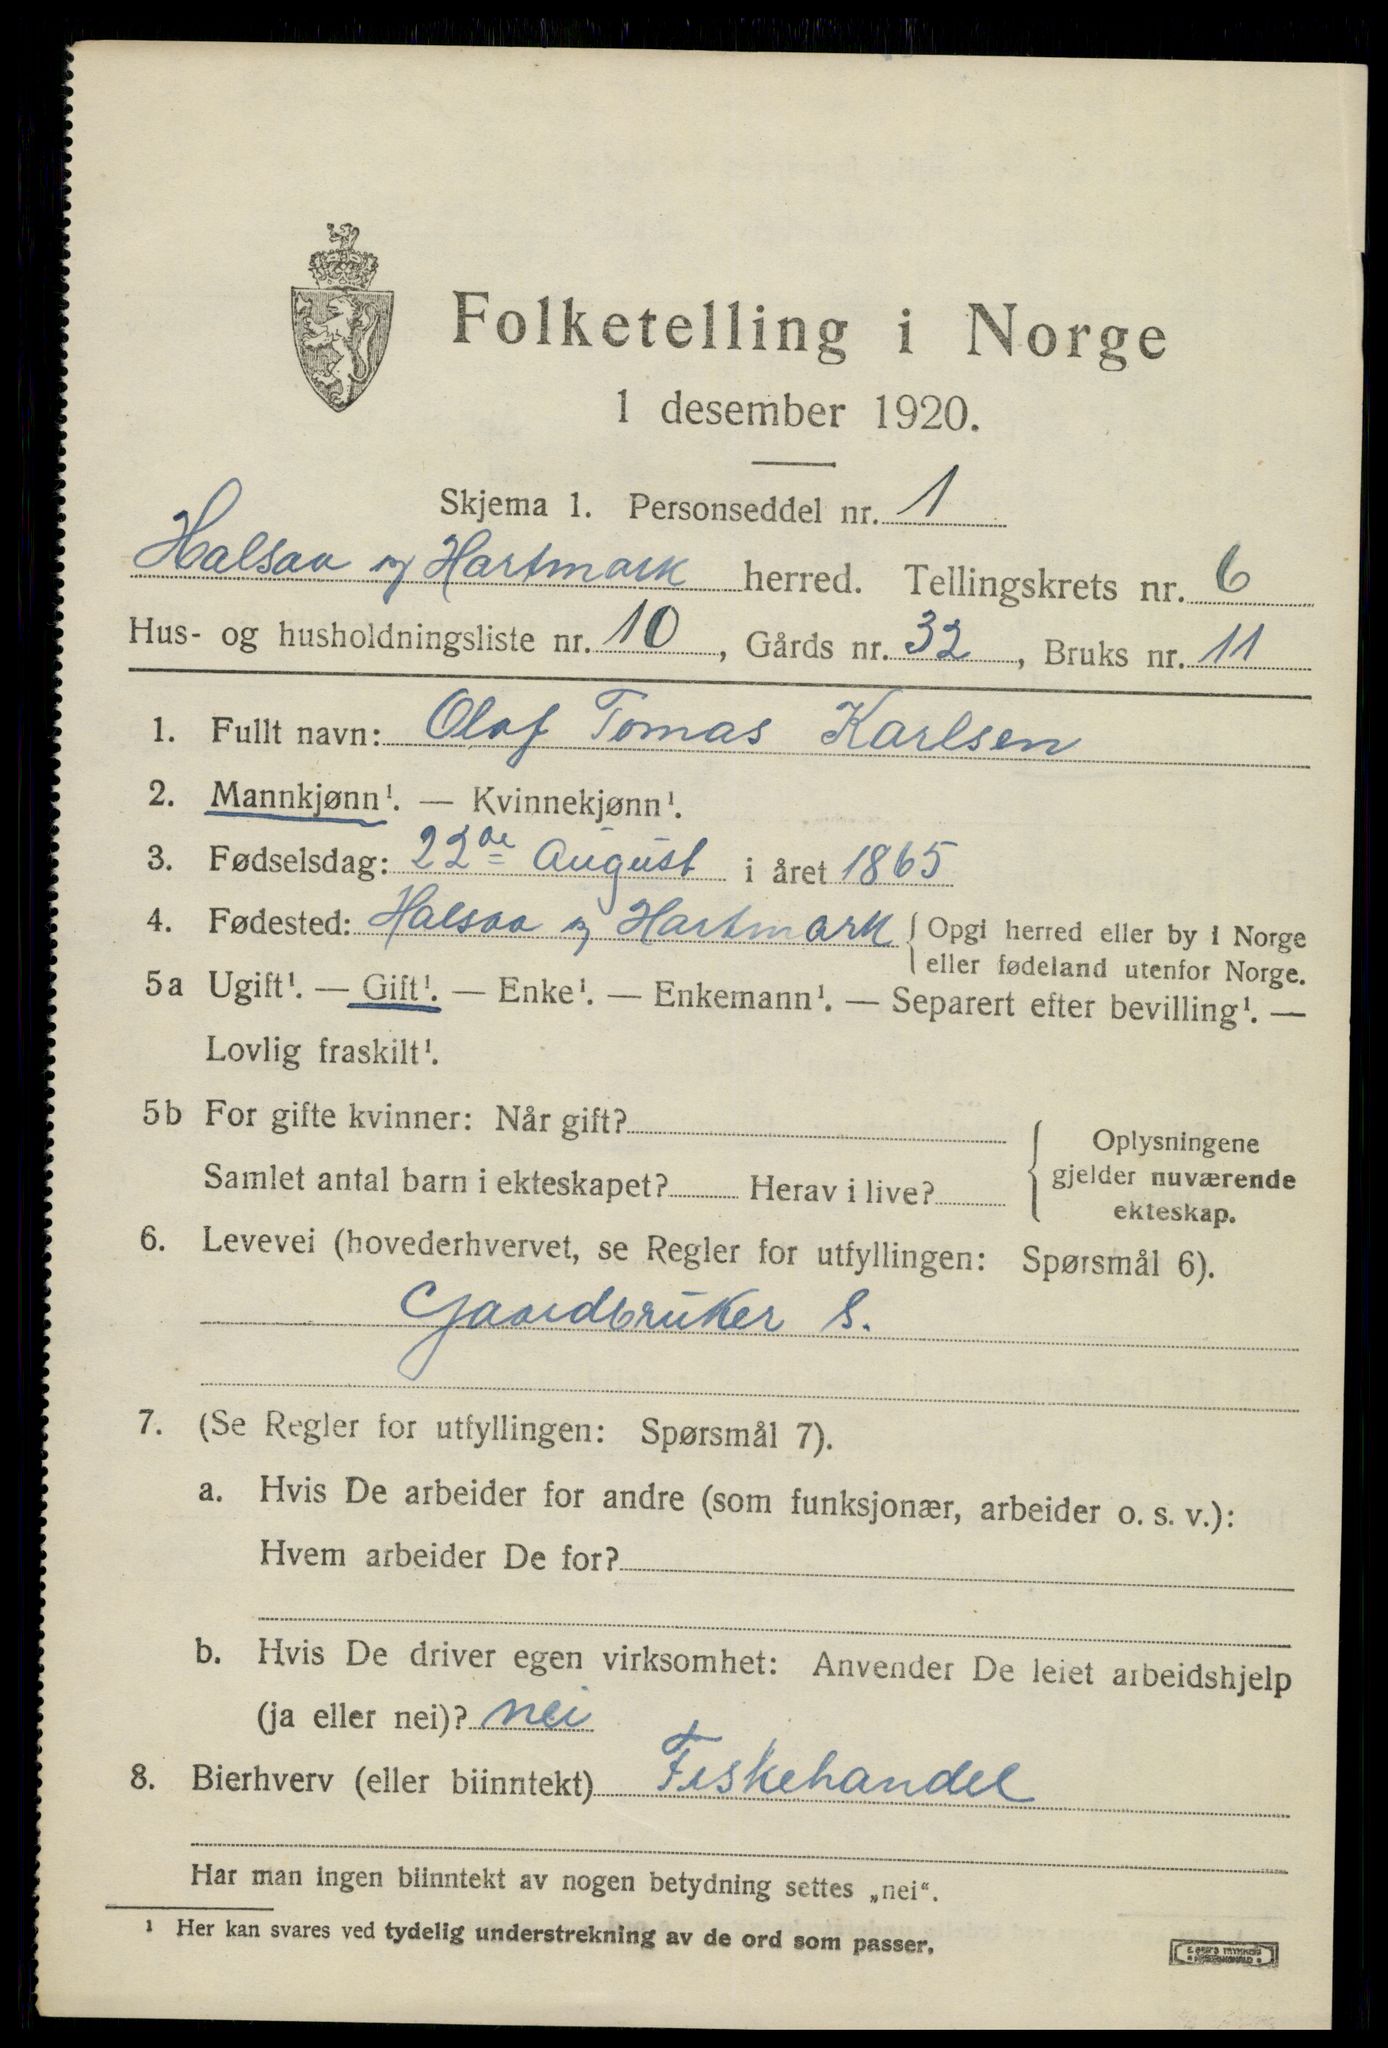 Folketelling i Norge
1 desember 1920.
Skjema 1. Personseddel nr. 1
Halsaa og Hartmark herred. Tellingskrets nr. 6
Hus- og husholdningsliste nr. 10, Gårds nr. 32, Bruks nr. 11
1. Fullt navn: Olaf Tomas Karlsen
2. Mannkjønn¹. — Kvinnekjønn¹.
3. Fødselsdag: 22de August i året 1865
4. Fødested: Halsaa og Hartmark { Opgi herred eller by i Norge
eller fødeland utenfor Norge.
5a Ugift¹. — Gift¹. — Enke¹. — Enkemann¹. — Separert efter bevilling¹. —
Lovlig fraskilt¹.
5b For gifte kvinner: Når gift?
Samlet antal barn i ekteskapet? Herav i live?
Oplysningene
gjelder nuværende
ekteskap.
6. Levevei (hovederhvervet, se Regler for utfyllingen: Spørsmål 6).
Gaardbruker S.
7. (Se Regler for utfyllingen: Spørsmål 7).
a. Hvis De arbeider for andre (som funksjonær, arbeider o. s. v.):
Hvem arbeider De for?
b. Hvis De driver egen virksomhet: Anvender De leiet arbeidshjelp
(ja eller nei)? nei
8. Bierhverv (eller biinntekt) Fiskehandel
Har man ingen biinntekt av nogen betydning settes „nei“.
¹ Her kan svares ved tydelig understrekning av de ord som passer.